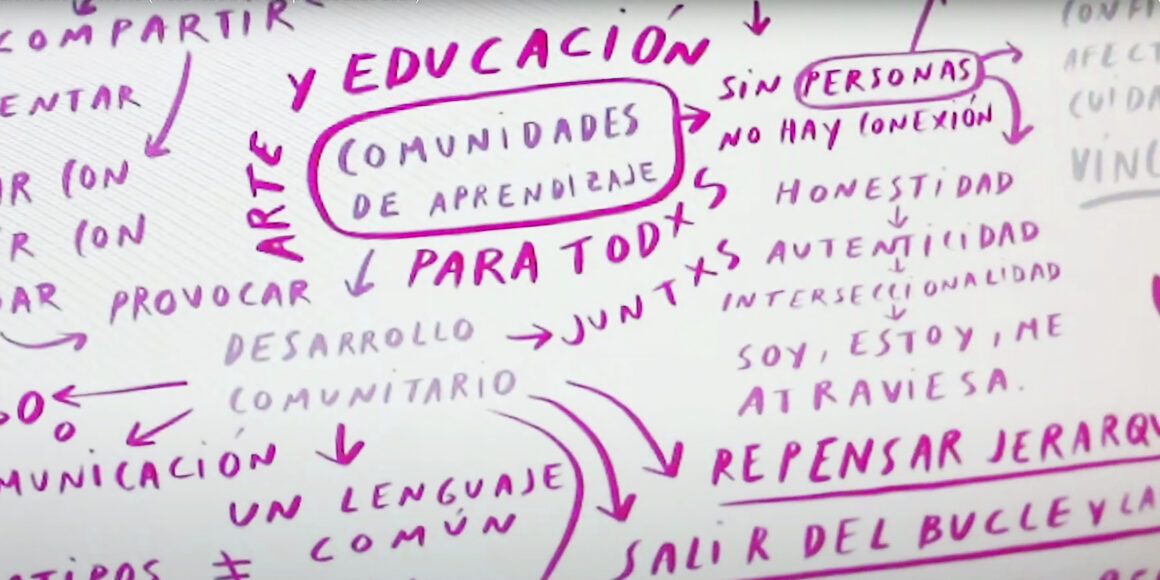 COMPARTIR
ENTAR
R CON
R CON
AR PROVOCAR
ARTE
Y EDUCACIÓN
COMUNIDADES
DE APRENDIZAJE
PARA TODXS
JUNTXS
DESARROLLO
COMUNITARIO
MUNICACIÓN
UN LENGUAJE
COMÚN
TIPOS ≠
SIN PERSONAS
NO HAY CONEXIÓN
HONESTIDAD
AUTENTICIDAD
INTERSECCIONALIDAD
SOY, ESTOY, ME
ATRAVIESA.
REPENSAR JERARQU
SALIR DEL BUCLE Y LA
CONFI
AFECT
CUIDA
VÍNC